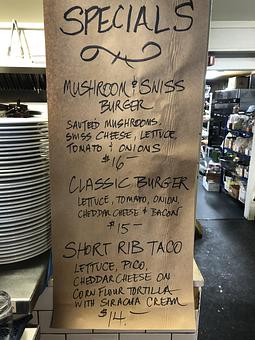 SPECIALS
MUSHROOM & SWISS
BURGER
SAUTEED MUSHROOMS,
SWISS CHEESE, LETTUCE,
TOMATO & ONIONS
$16-
CLASSIC BURGER
LETTUCE, TOMATO, ONION,
CHEDDAR CHEESE & BACON
$15-
SHORT RIB TACO
LETTUCE, PICO,
CHEDDAR CHEESE ON
CORN FLOUR TORTILLA
WITH SIRACHA CREAM
$14.-